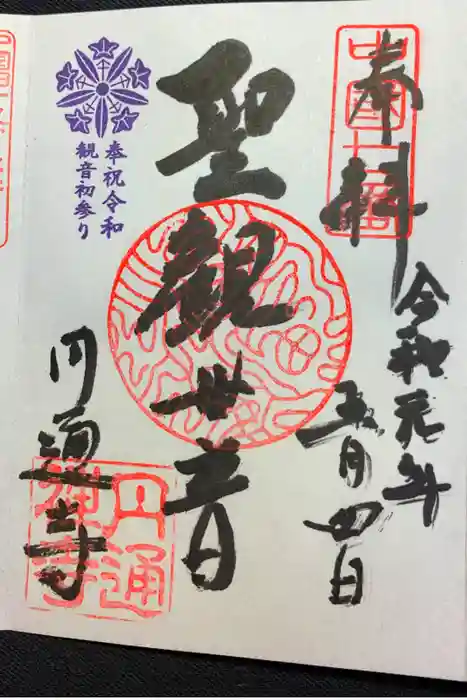 奉拝
令和元年
五月四日
聖観世音
奉祝令和
観音初参り
円通寺
円通
禅寺